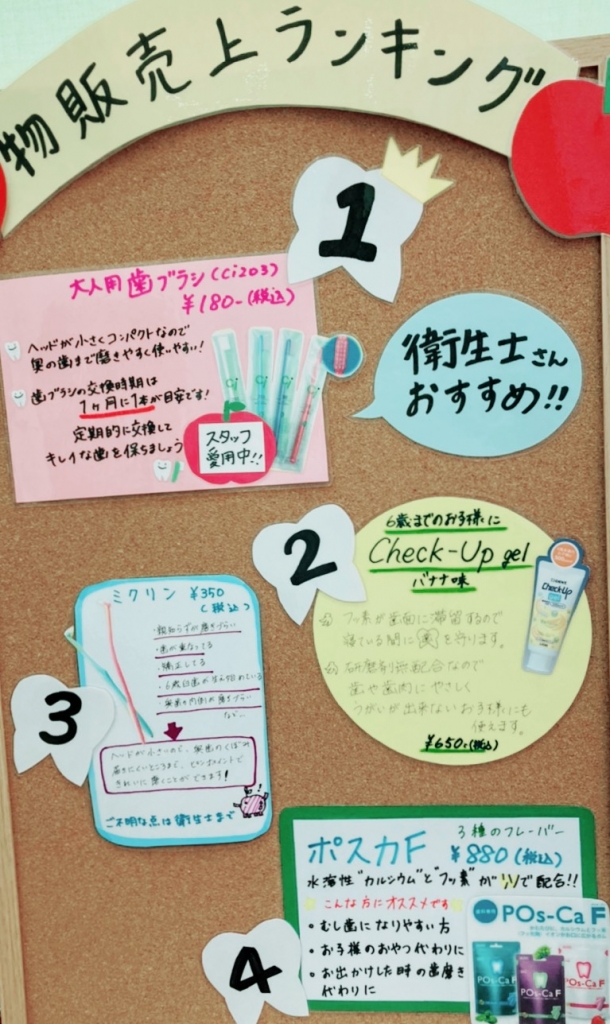 物販売上ランキング
1
大人用歯ブラシ(Ci203)
¥180-(税込)
ヘッドが小さくコンパクトなので
奥の歯まで磨きやすく使いやすい!
歯ブラシの交換時期は
1ヶ月に1本が目安です!
定期的に交換して
キレイな歯を保ちましょう
スタッフ
愛用中!!
衛生士さん
おすすめ!!
2
6歳までのお子様に
Check-Up gel
バナナ味
フッ素が歯面に滞留するので
寝ている間に歯を守ります。
研磨剤無配合なので
歯や歯肉にやさしく
うがいが出来ないお子様にも
使えます。
¥650-(税込)
Check-Up
3
ミクリン ¥350
(税込)
・親知らずが磨きづらい
・歯が重なってる
・矯正してる
・6歳臼歯が生え始めている
・奥歯の内側が磨きづらい
など…
ヘッドが小さいので、奥歯のくぼみ
磨きにくいところまで、ピンポイントで
きれいに磨くことができます!
ご不明な点は衛生士まで
4
ポスカF
3種のフレーバー
¥880(税込)
水溶性"カルシウム"と"フッ素"がWで配合!!
こんな方にオススメです
・むし歯になりやすい方
・お子様のおやつ代わりに
・お出かけした時の歯磨き
代わりに
POs-Ca F
POs-Ca F
POs-Ca F
POs-Ca F